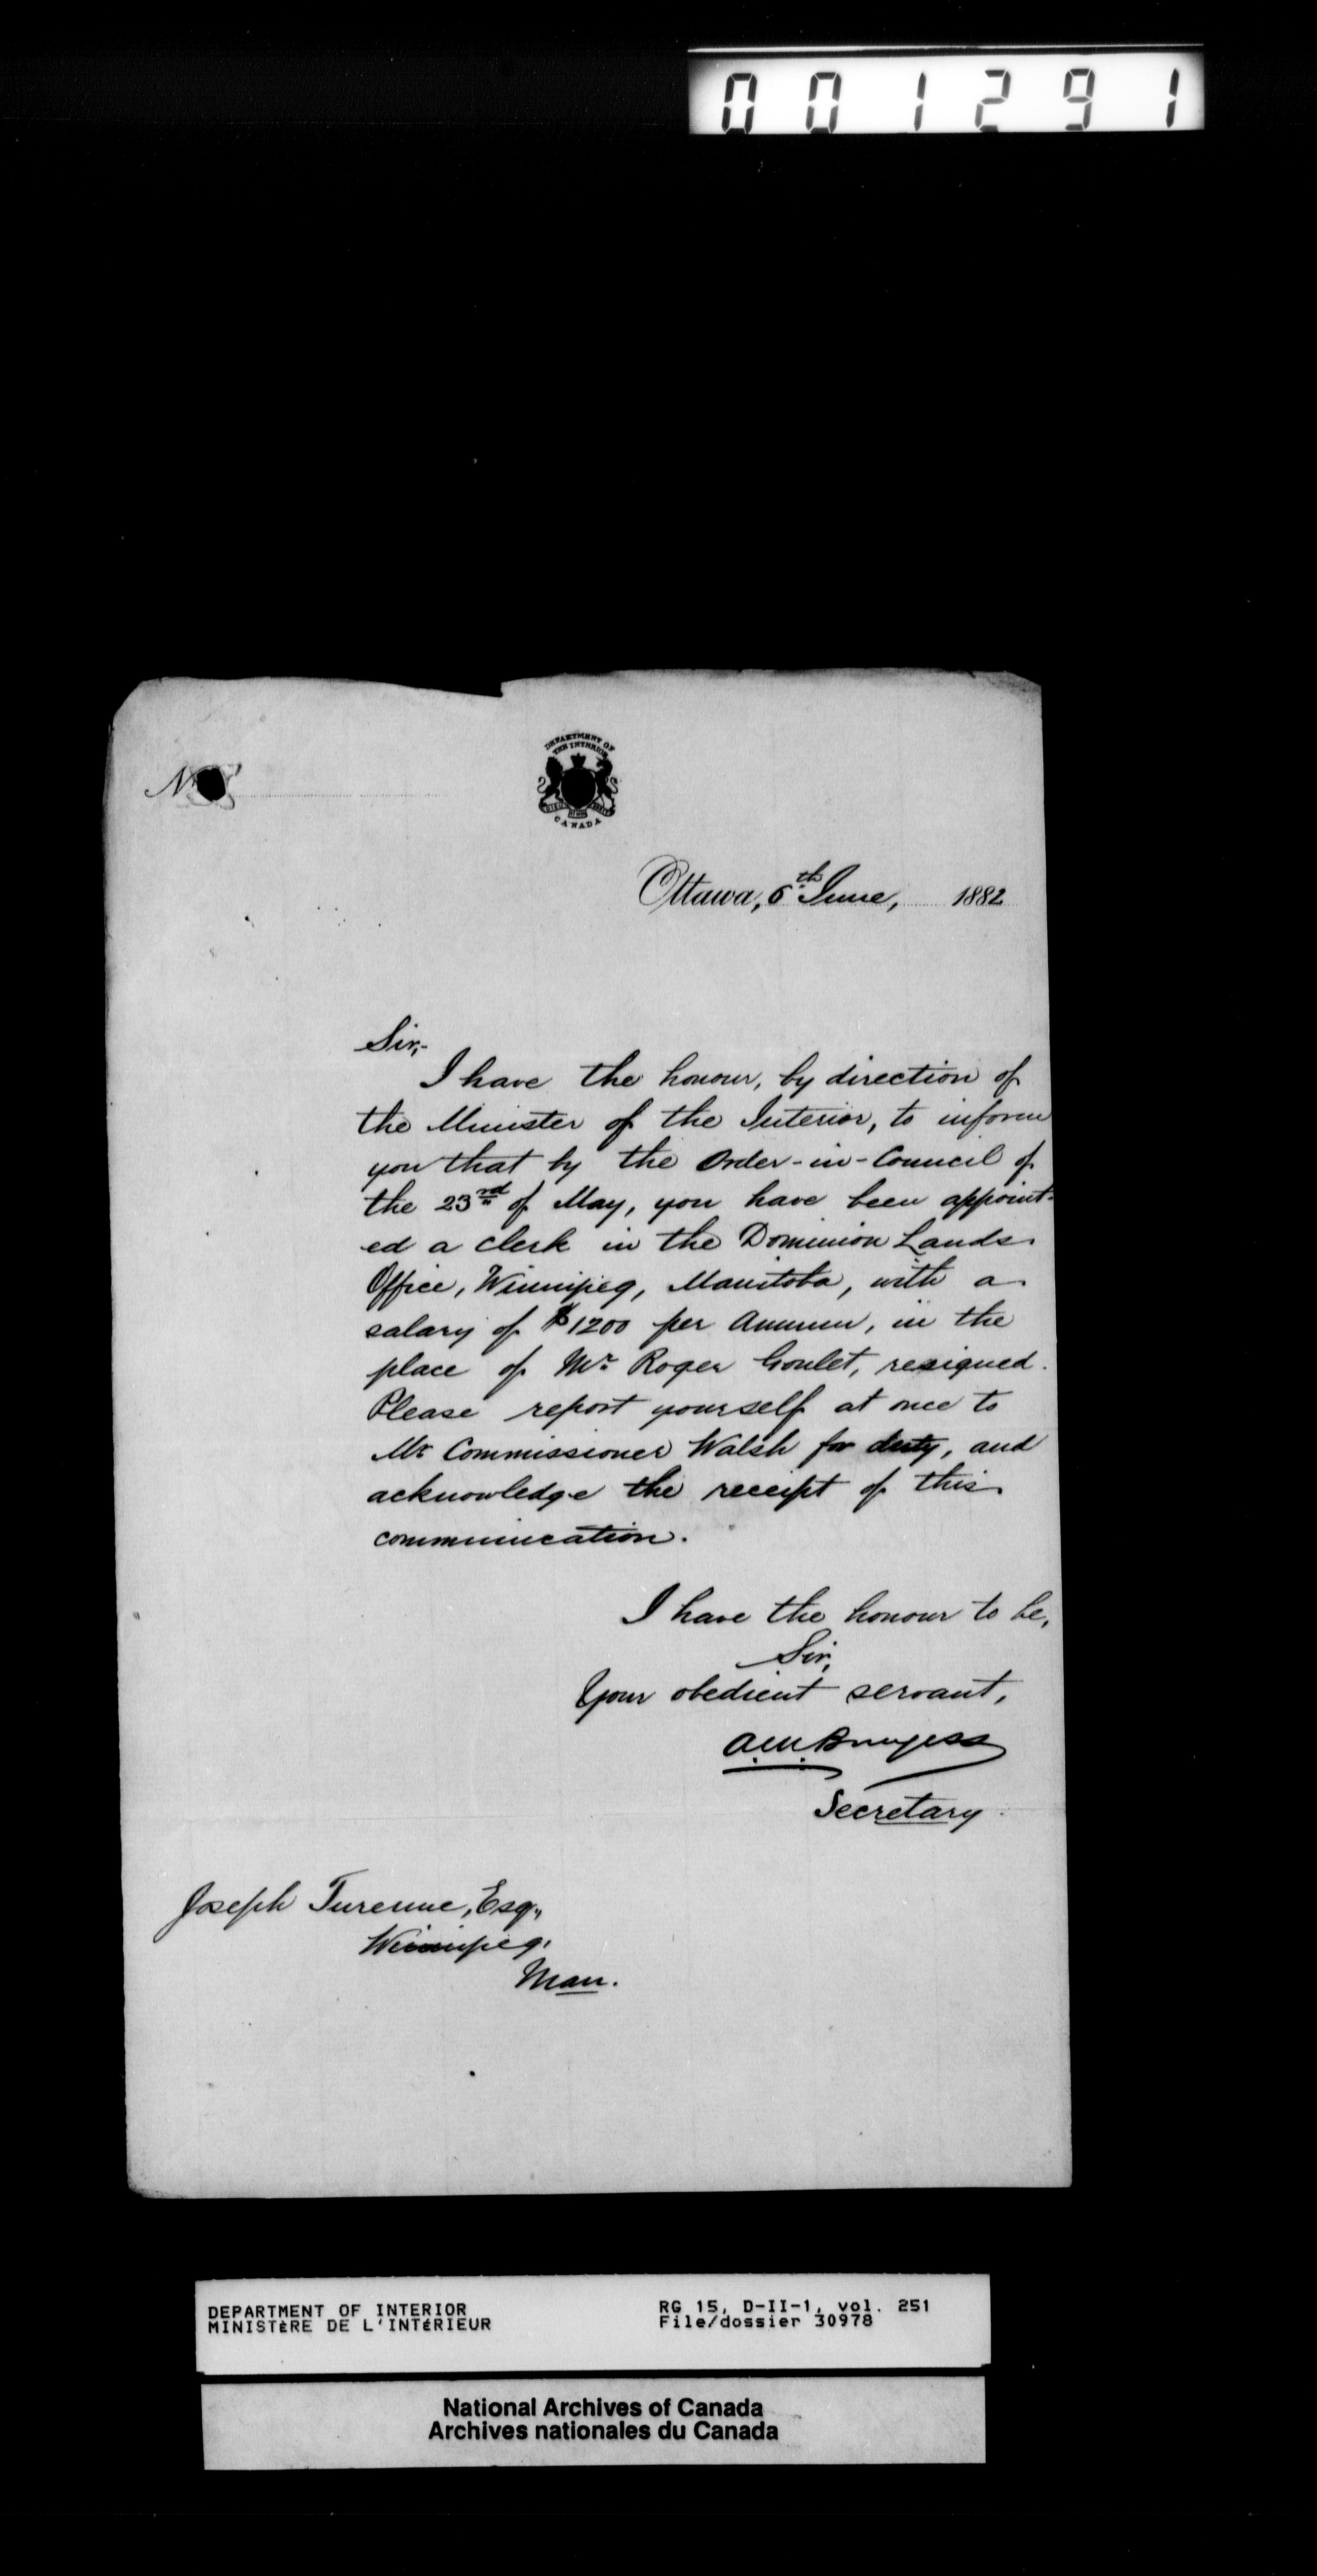 001291
No
DEPARTMENT OF
THE INTERIOR
CANADA
Ottawa, 6th June, 1882
Sir,-
I have the honour, by direction of
the Minister of the Interior, to inform
you that by the Order-in-Council of
the 23rd of May, you have been appoint-
ed a clerk in the Dominion Lands
Office, Winnipeg, Manitoba, with a
salary of $1200 per Annum, in the
place of Mr Roger Goulet, resigned.
Please report yourself at once to
Mr Commissioner Walsh for duty, and
acknowledge the receipt of this
communication.
I have the honour to be,
Sir,
Your obedient servant,
A.M. Burgess
Secretary.
Joseph Turenne, Esq.,
Winnipeg,
Man.
DEPARTMENT OF INTERIOR
MINISTÈRE DE L'INTÉRIEUR
RG 15, D-II-1, vol. 251
File/dossier 30978
National Archives of Canada
Archives nationales du Canada